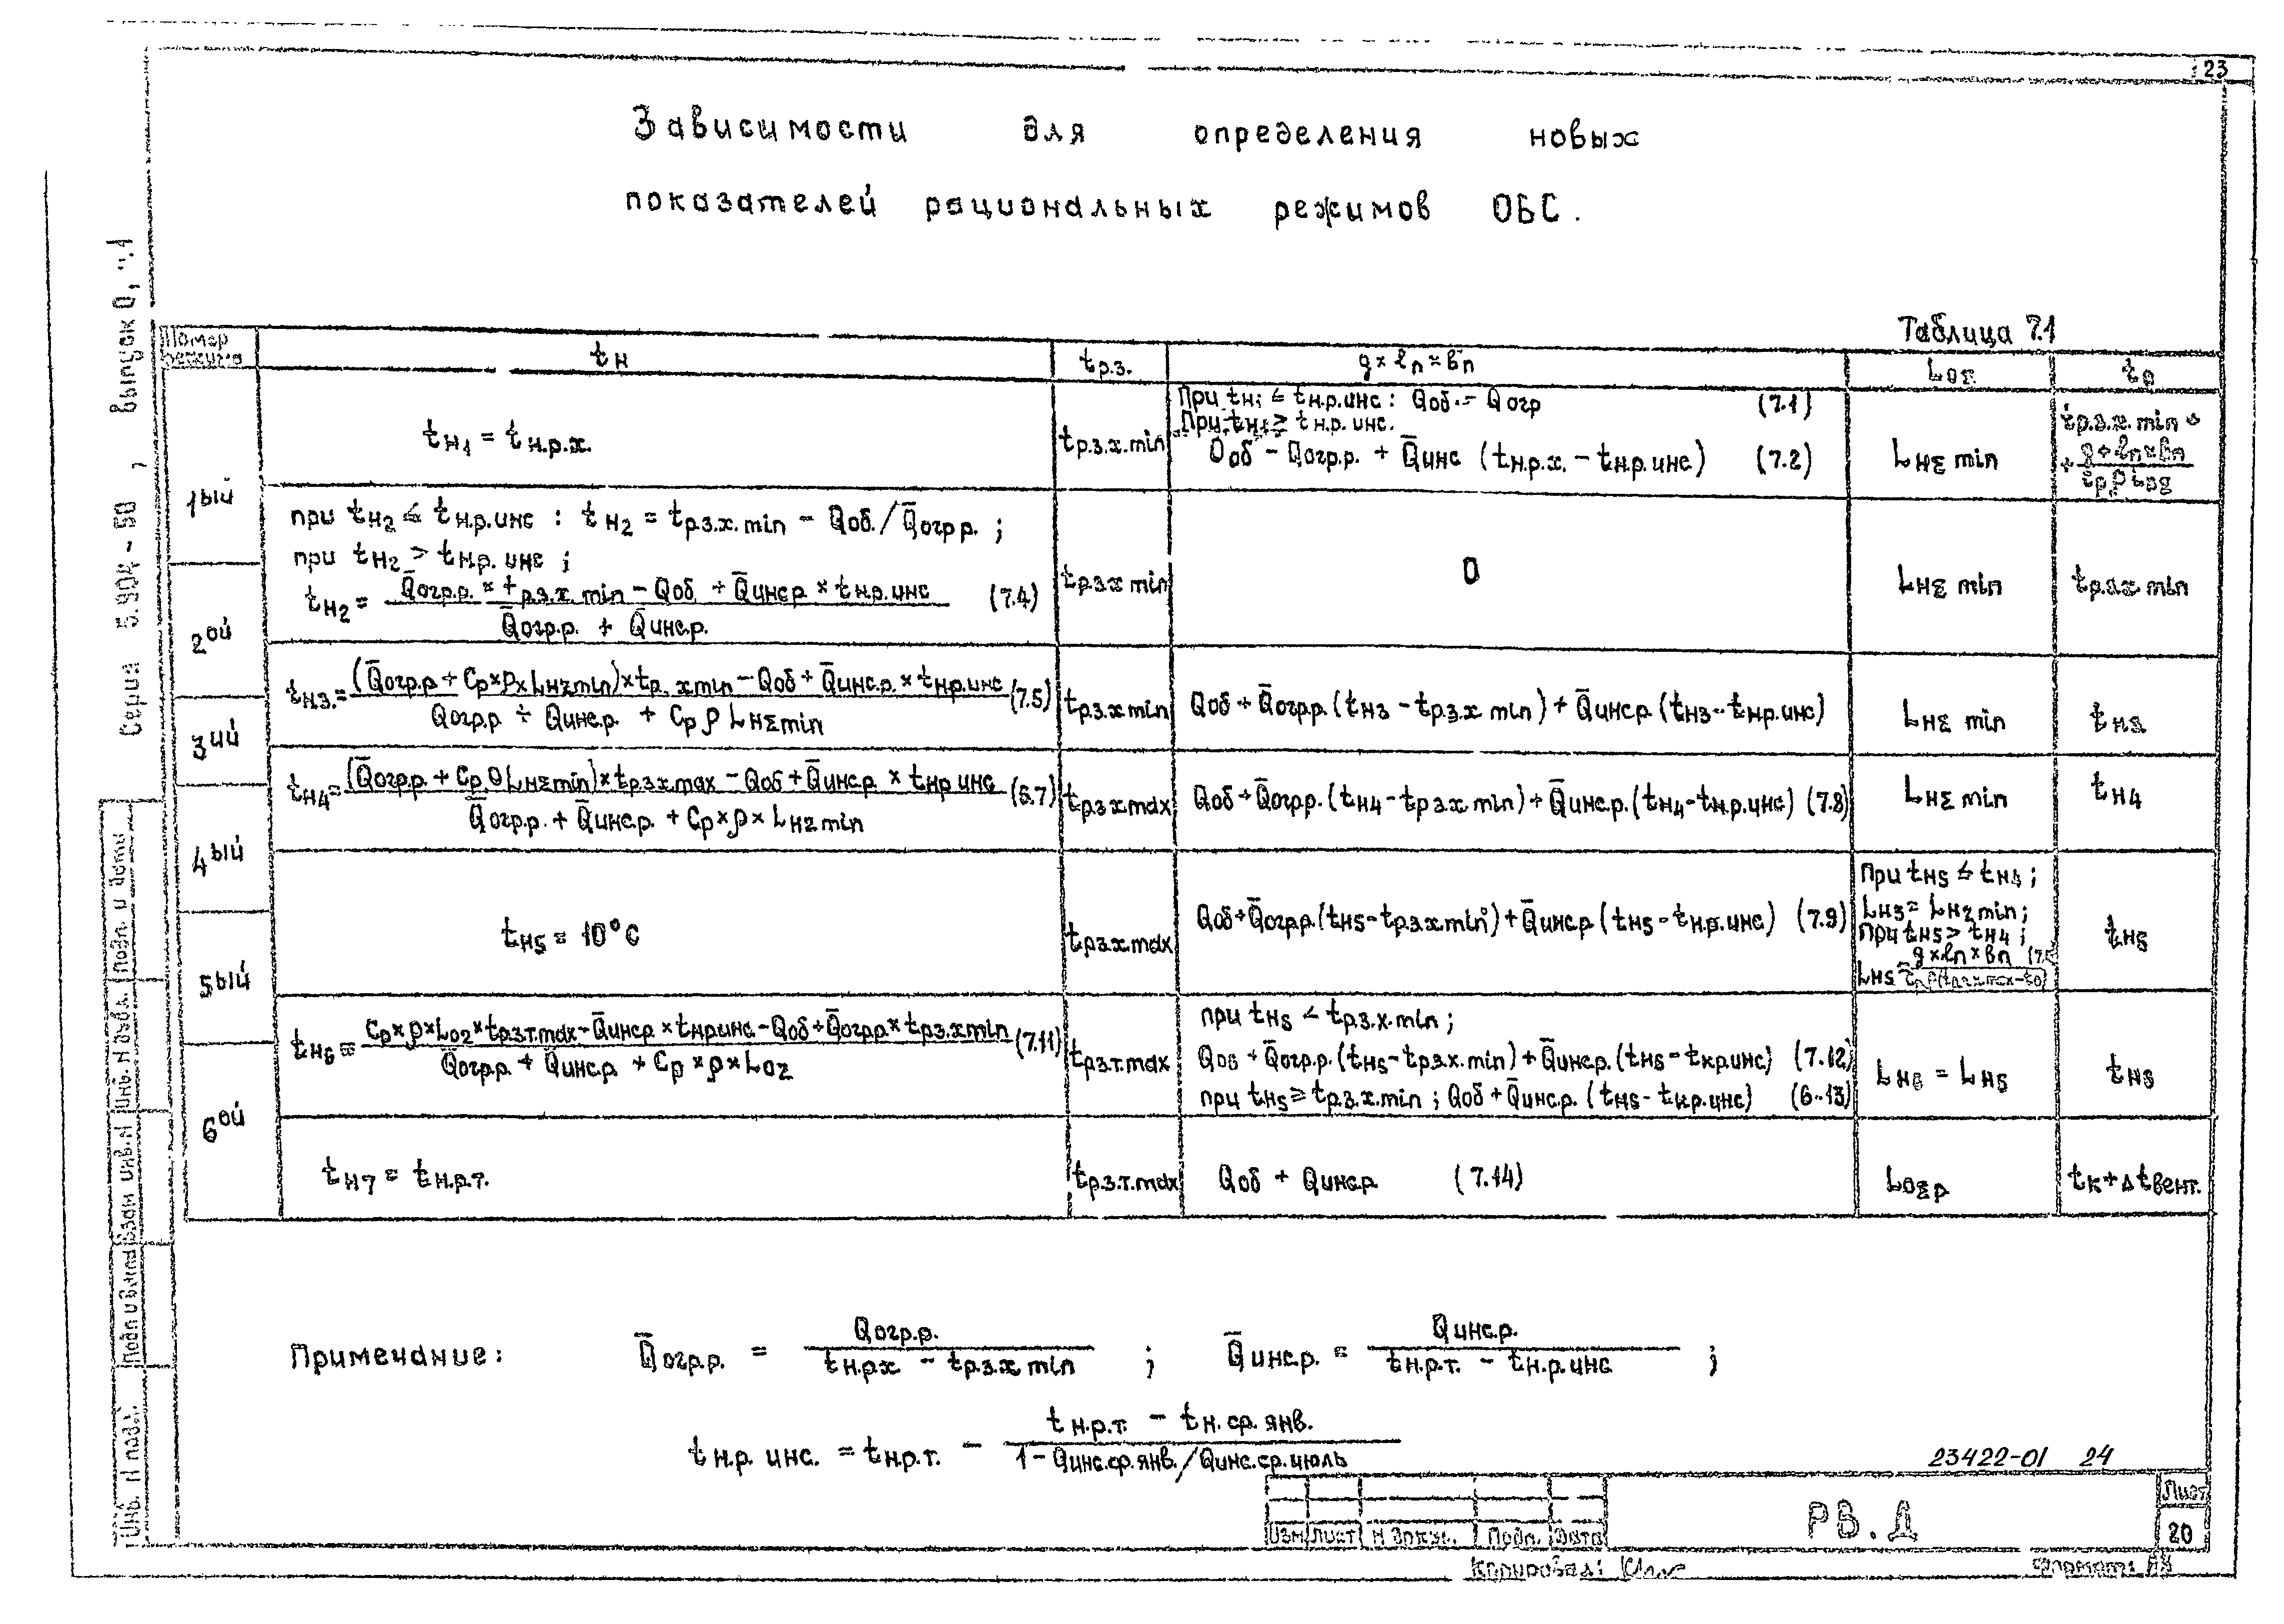 23
Зависимости для определения новых
показателей рациональных режимов ОБС.
Серия 5.904-50, выпуск 0, ч.1
Таблица 7.1
Номер режима
tн
tр.з.
q×ℓп×bп
Lо∑
tо
1ый
2ой
3ий
4ый
5ый
6ой
tн₁ = tн.р.х.
tр.з.х.min
При tн₁ ≤ tн.р.инс : Qоб. − Qогр (7.1)
При tн₁ ≥ tн.р.инс.
Qоб − Qогр.р. + Q̄инс (tн.р.х. − tн.р.инс) (7.2)
Lн∑ min
tр.з.х.min +
при tн₂ ≤ tн.р.инс : tн₂ = tр.з.х.min − Qоб./Q̄огр р. ;
при tн₂ > tн.р.инс ;
tн₂ = (Q̄огр.р. × tр.з.х.min − Qоб + Q̄инс.р × tн.р.инс) / (Q̄огр.р. + Q̄инс.р.) (7.4)
tр.з.х min
0
Lн∑ min
tр.з.х.min
tн3. = (Q̄огр.р + Cр×ρ×Lн∑min)×tр. х min − Qоб + Q̄инс.р. × tн.р.инс / Qогр.р + Qинс.р. + Cр ρ Lн∑min (7.5)
tр.з.х min
Qоб + Q̄огр.р. (tн3 − tр.з.х min) + Q̄инс.р. (tн3 − tн.р.инс)
Lн∑ min
tн3
tн4 = (Q̄огр.р. + Cр ρ Lн∑min)×tр.з.х max − Qоб + Q̄инс.р. × tн.р инс / Q̄огр.р. + Q̄инс.р. + Cр×ρ×Lн∑ min (6.7)
tр.з.х max
Qоб + Q̄огр.р. (tн4 − tр.з.х min) + Q̄инс.р. (tн4 − tн.р.инс) (7.8)
Lн∑ min
tн4
tн5 = 10°C
tр.з.х max
Qоб + Q̄огр.р. (tн5 − tр.з.х min) + Q̄инс.р (tн5 − tн.р.инс) (7.9)
При tн5 ≤ tн4 ;
Lн5 = Lн∑ min;
При tн5 > tн4 ;
q×ℓп×bп
Lн5 =
tн5
tн6 = Cр×ρ×Lо∑×tр.з.т.max − Q̄инс.р × tн.р.инс − Qоб + Q̄огр.р × tр.з.х min / Q̄огр.р + Q̄инс.р + Cр×ρ×Lо∑ (7.11)
tр.з.т.max
при tн5 < tр.з.х.min ;
Qоб + Q̄огр.р. (tн5 − tр.з.х.min) + Q̄инс.р. (tн5 − tкр.инс) (7.12)
при tн5 ≥ tр.з.х.min ; Qоб + Q̄инс.р. (tн5 − tн.р.инс) (6.13)
Lн6 = Lн5
tн6
tн7 = tн.р.т.
tр.з.т.max
Qоб + Qинс.р (7.14)
Lо∑р
tк+Δtвент.
Примечание: Q̄огр.р. = Qогр.р. / tн.р.х − tр.з.х min ; Q̄инс.р. = Qинс.р. / tн.р.т. − tн.р.инс ;
tн.р. инс. = tн.р.т. − tн.р.т. − tн.ср.янв. / 1 − Qинс.ср.янв./Qинс.ср.июль
23422-01 24
Изм Лист N докум. Подп. Дата
РВ.Д
Лист
20
Копировал:
Формат: А3
Инв. N подл. Подп и дата Взам инв. N Инв. N дубл. Подп. и дата